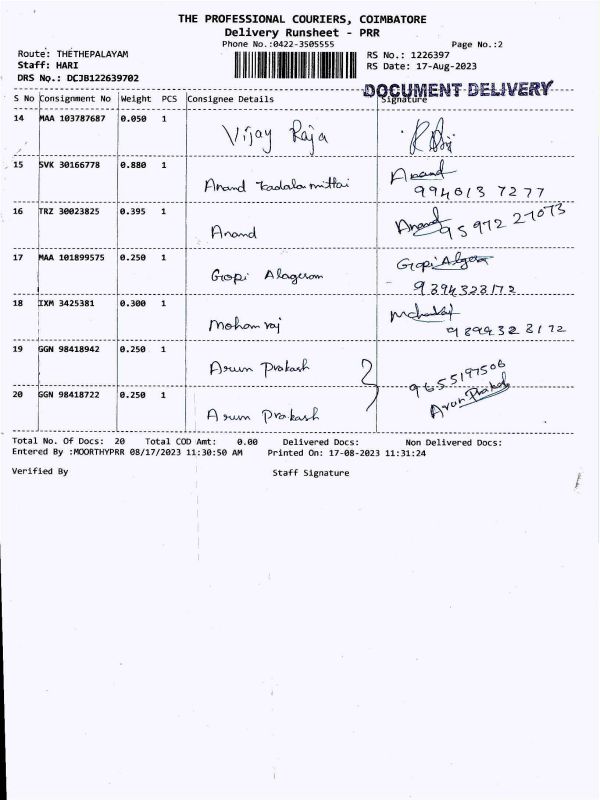 THE PROFESSIONAL COURIERS, COIMBATORE
Delivery Runsheet - PRR
Phone No.:0422-3505555 Page No.:2
Route: THETHEPALAYAM RS No.: 1226397
Staff: HARI RS Date: 17-Aug-2023
DRS No.: DCJB122639702
DOCUMENT DELIVERY
S No Consignment No Weight PCS Consignee Details Signature
14 MAA 103787687 0.050 1
Vijay Raja
15 SVK 30166778 0.880 1 Anand
Anand Kadalai mittai 994013 7277
16 TRZ 30023825 0.395 1 Anand 95972 27073
Anand
17 MAA 101899575 0.250 1 Gopi Alageson
Gopi Alagesan 9394328172
18 IXM 3425381 0.300 1
Mohan raj 9899328172
19 GGN 98418942 0.250 1
Arun Prakash 9655197506
20 GGN 98418722 0.250 1 Arun Prakash
Arun Prakash
Total No. Of Docs: 20 Total COD Amt: 0.00 Delivered Docs: Non Delivered Docs:
Entered By :MOORTHYPRR 08/17/2023 11:30:50 AM Printed On: 17-08-2023 11:31:24
Verified By Staff Signature